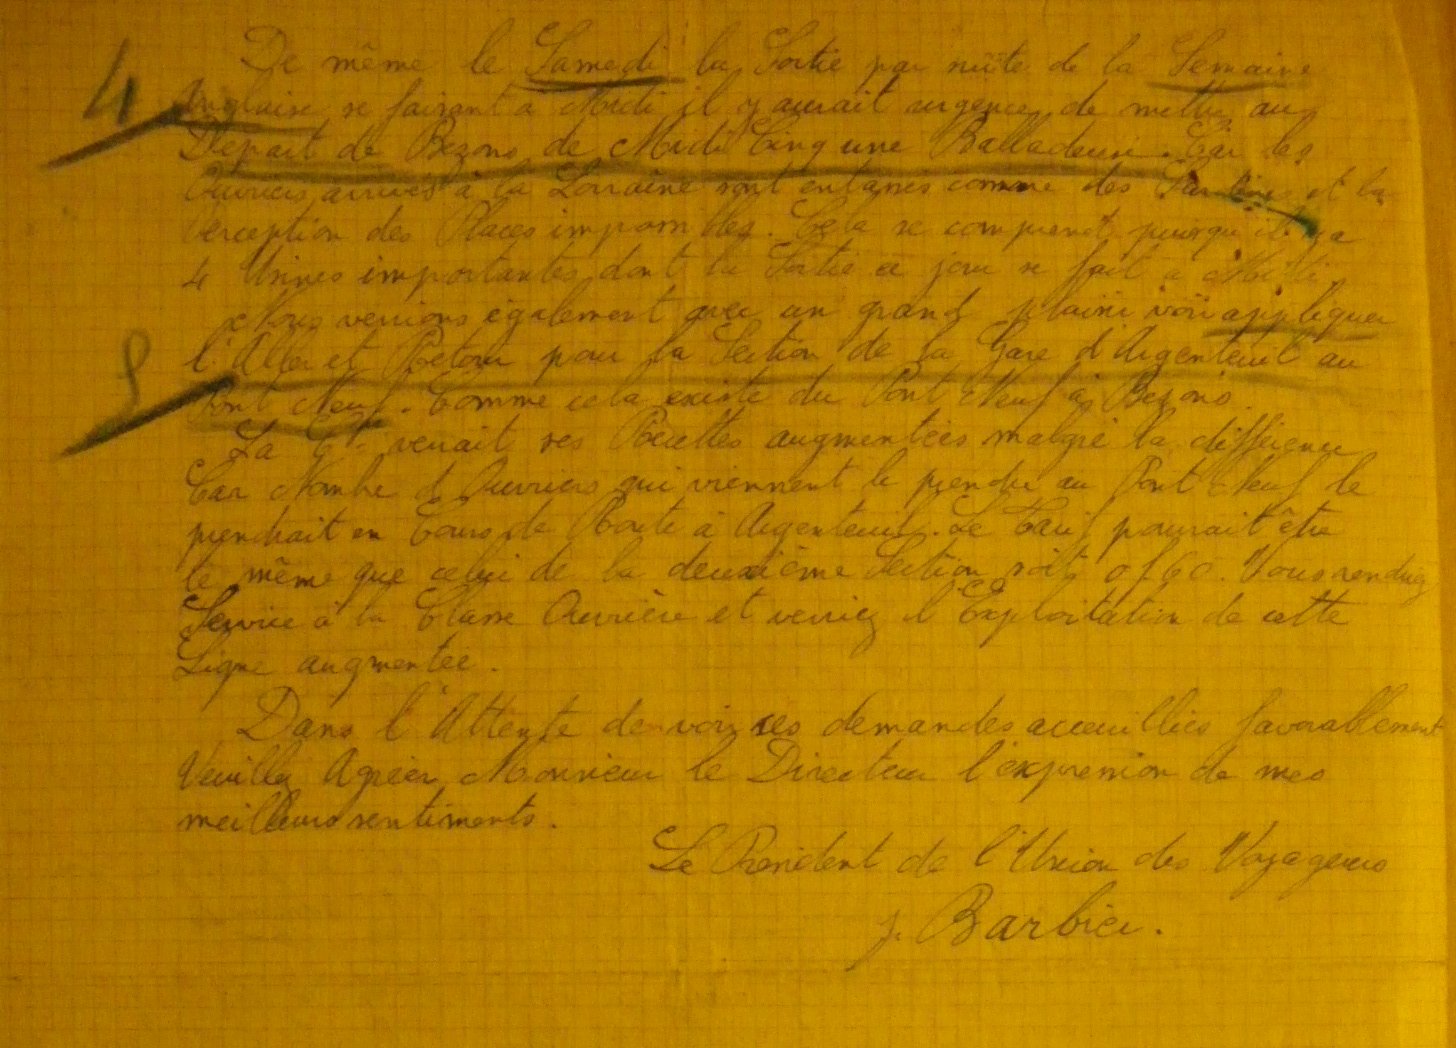 De même le Samedi la Sortie par suite de la Semaine
4 Anglaise se faisant à Midi il y aurait urgence de mettre au
Départ de Bezons de Midi Cinq une Balladeuse. Car les
Ouvriers arrivés à la Lorraine sont entassés comme des Sardines et la
perception des Places impossibles. Cela se comprend puisqu'il y a
4 Usines importantes dont la Sortie ce jour se fait à Midi,
Nous verrions également avec un grand plaisir voir appliquer
5 l'Aller et Retour pour la Section de la Gare d'Argenteuil au
Pont Neuf. Comme cela existe du Pont Neuf à Bezons.
La Cie verrait ses Recettes augmentées malgré la différence
Car Nombre d'Ouvriers qui viennent le prendre au Pont Neuf le
prendrait en Cours de Route à Argenteuil. Le Tarif pourrait être
le même que celui de la deuxième Section soit 0f60. Vous rendriez
Service à la Classe Ouvrière et verriez l'Exploitation de cette
Ligne augmentée.
Dans l'Attente de voir ses demandes accueillies favorablement
Veuillez Agréer Monsieur le Directeur l'expression de mes
meilleurs sentiments.
Le President de l'Union des Voyageurs
J. Barbier.